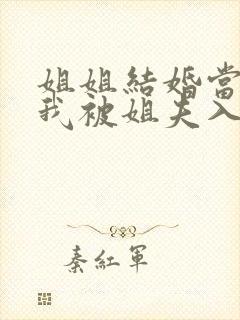 姐姐結婚當
我被姐夫入
秦紅軍